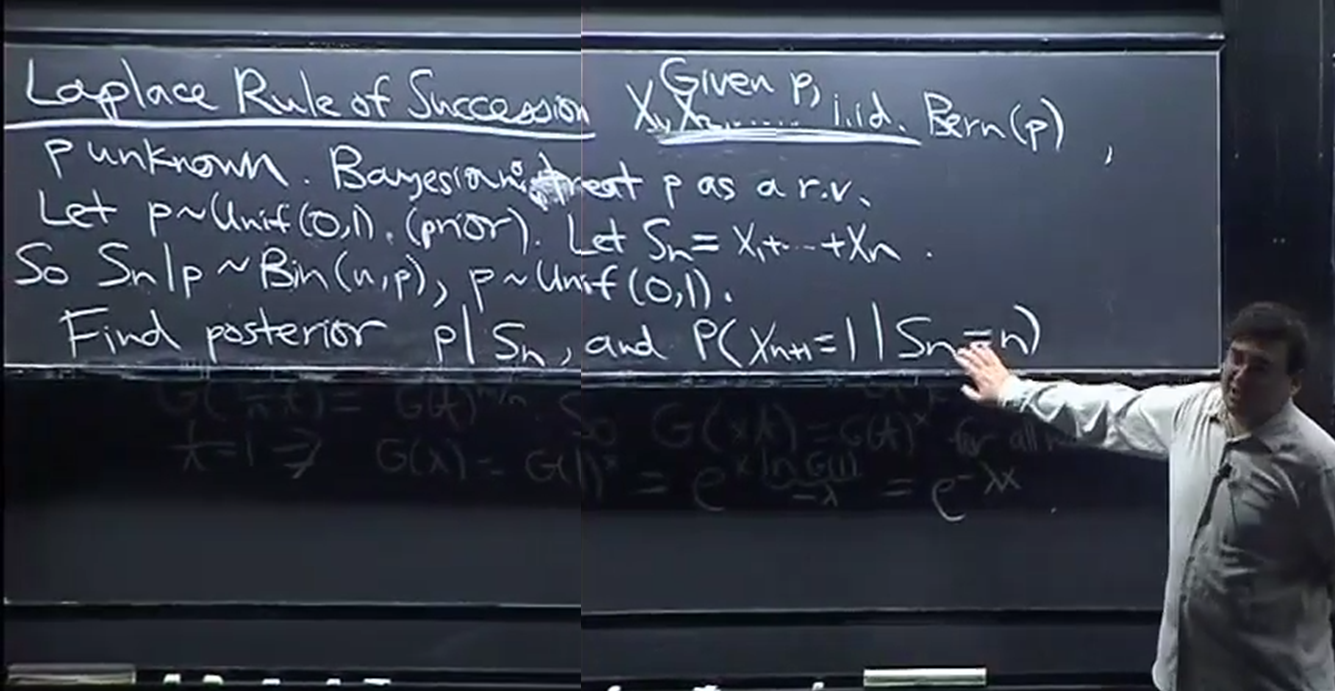 Laplace Rule of Succession Given p, X₁, X₂, ..... i.i.d. Bern(p),
p unknown. Bayesian: treat p as a r.v.
Let p~Unif(0,1). (prior). Let Sn = X₁+...+Xn.
So Sn|p ~ Bin(n,p), p~Unif(0,1).
Find posterior p|Sn, and P(Xn+1=1|Sn=n)
So G(xt) = G(t)^x for all
t=1 ⇒ G(x) = G(1)^x = e^(x ln G(1)) = e^(-λx)
-λ